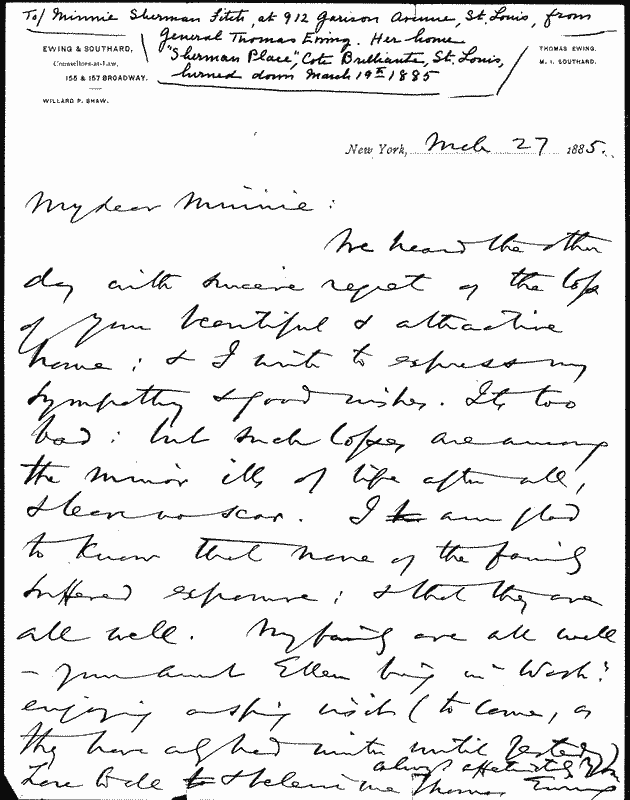 To/ Minnie Sherman Fitch, at 912 Garison Avenue, St. Louis, from
General Thomas Ewing. Her home
"Sherman Place", Cote Brilliante, St. Louis,
burned down March 19th 1885
EWING & SOUTHARD,
Counsellors-at-Law,
155 & 157 BROADWAY.
WILLARD P. SHAW.
THOMAS EWING.
M. I. SOUTHARD.
New York, Mch 27 1885.
My dear Minnie:
We heard the other
day with sincere regret of the loss
of your beautiful & attractive
home; & I write to express my
sympathy & good wishes. Its too
bad: but such losses are among
the minor ills of life after all,
& leave no scar. I am glad
to know that none of the family
suffered exposure; & that they are
all well. My family are all well
- your Aunt Ellen being in Wash:
enjoying a spring visit (to come, as
they have all had winter until yesterday)
Love to all & believe me always affectionately Yrs
Thomas Ewing